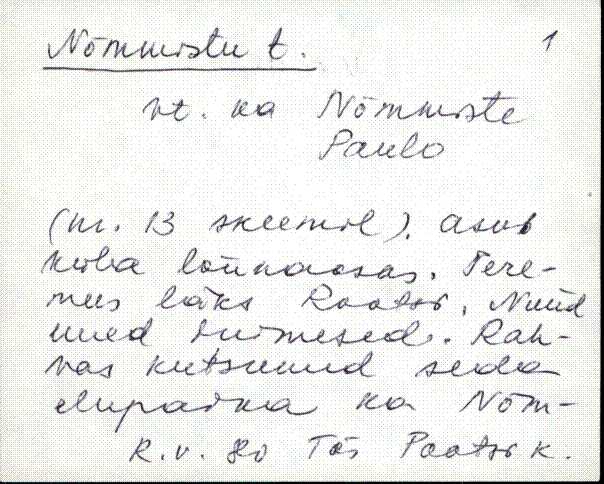 Nõmmistu t. 1
vt. ka Nõmmiste
Paulo
(nr. 13 skeemil). asub
küla lõunaosas. Pere-
mees läks Rootsi. Nüüd
uued inimesed. Rah-
vas kutsunud seda
elupaika ka Nõm-
R.V. 80 Tõs Pootsi k.